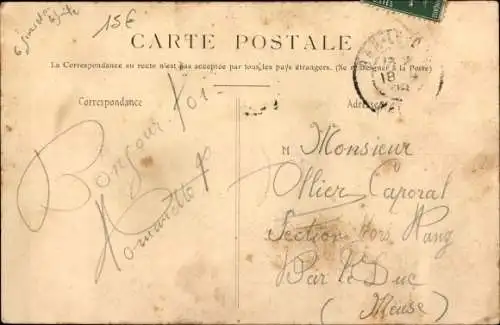 15€
CARTE POSTALE
La Correspondance au recto n'est pas acceptée par tous les pays étrangers. (Se renseigner à la Poste)
Correspondance
Adresse
Bonjour
M Monsieur
Ollier Caporal
Section Hors Rang
Bar le Duc
(Meuse)